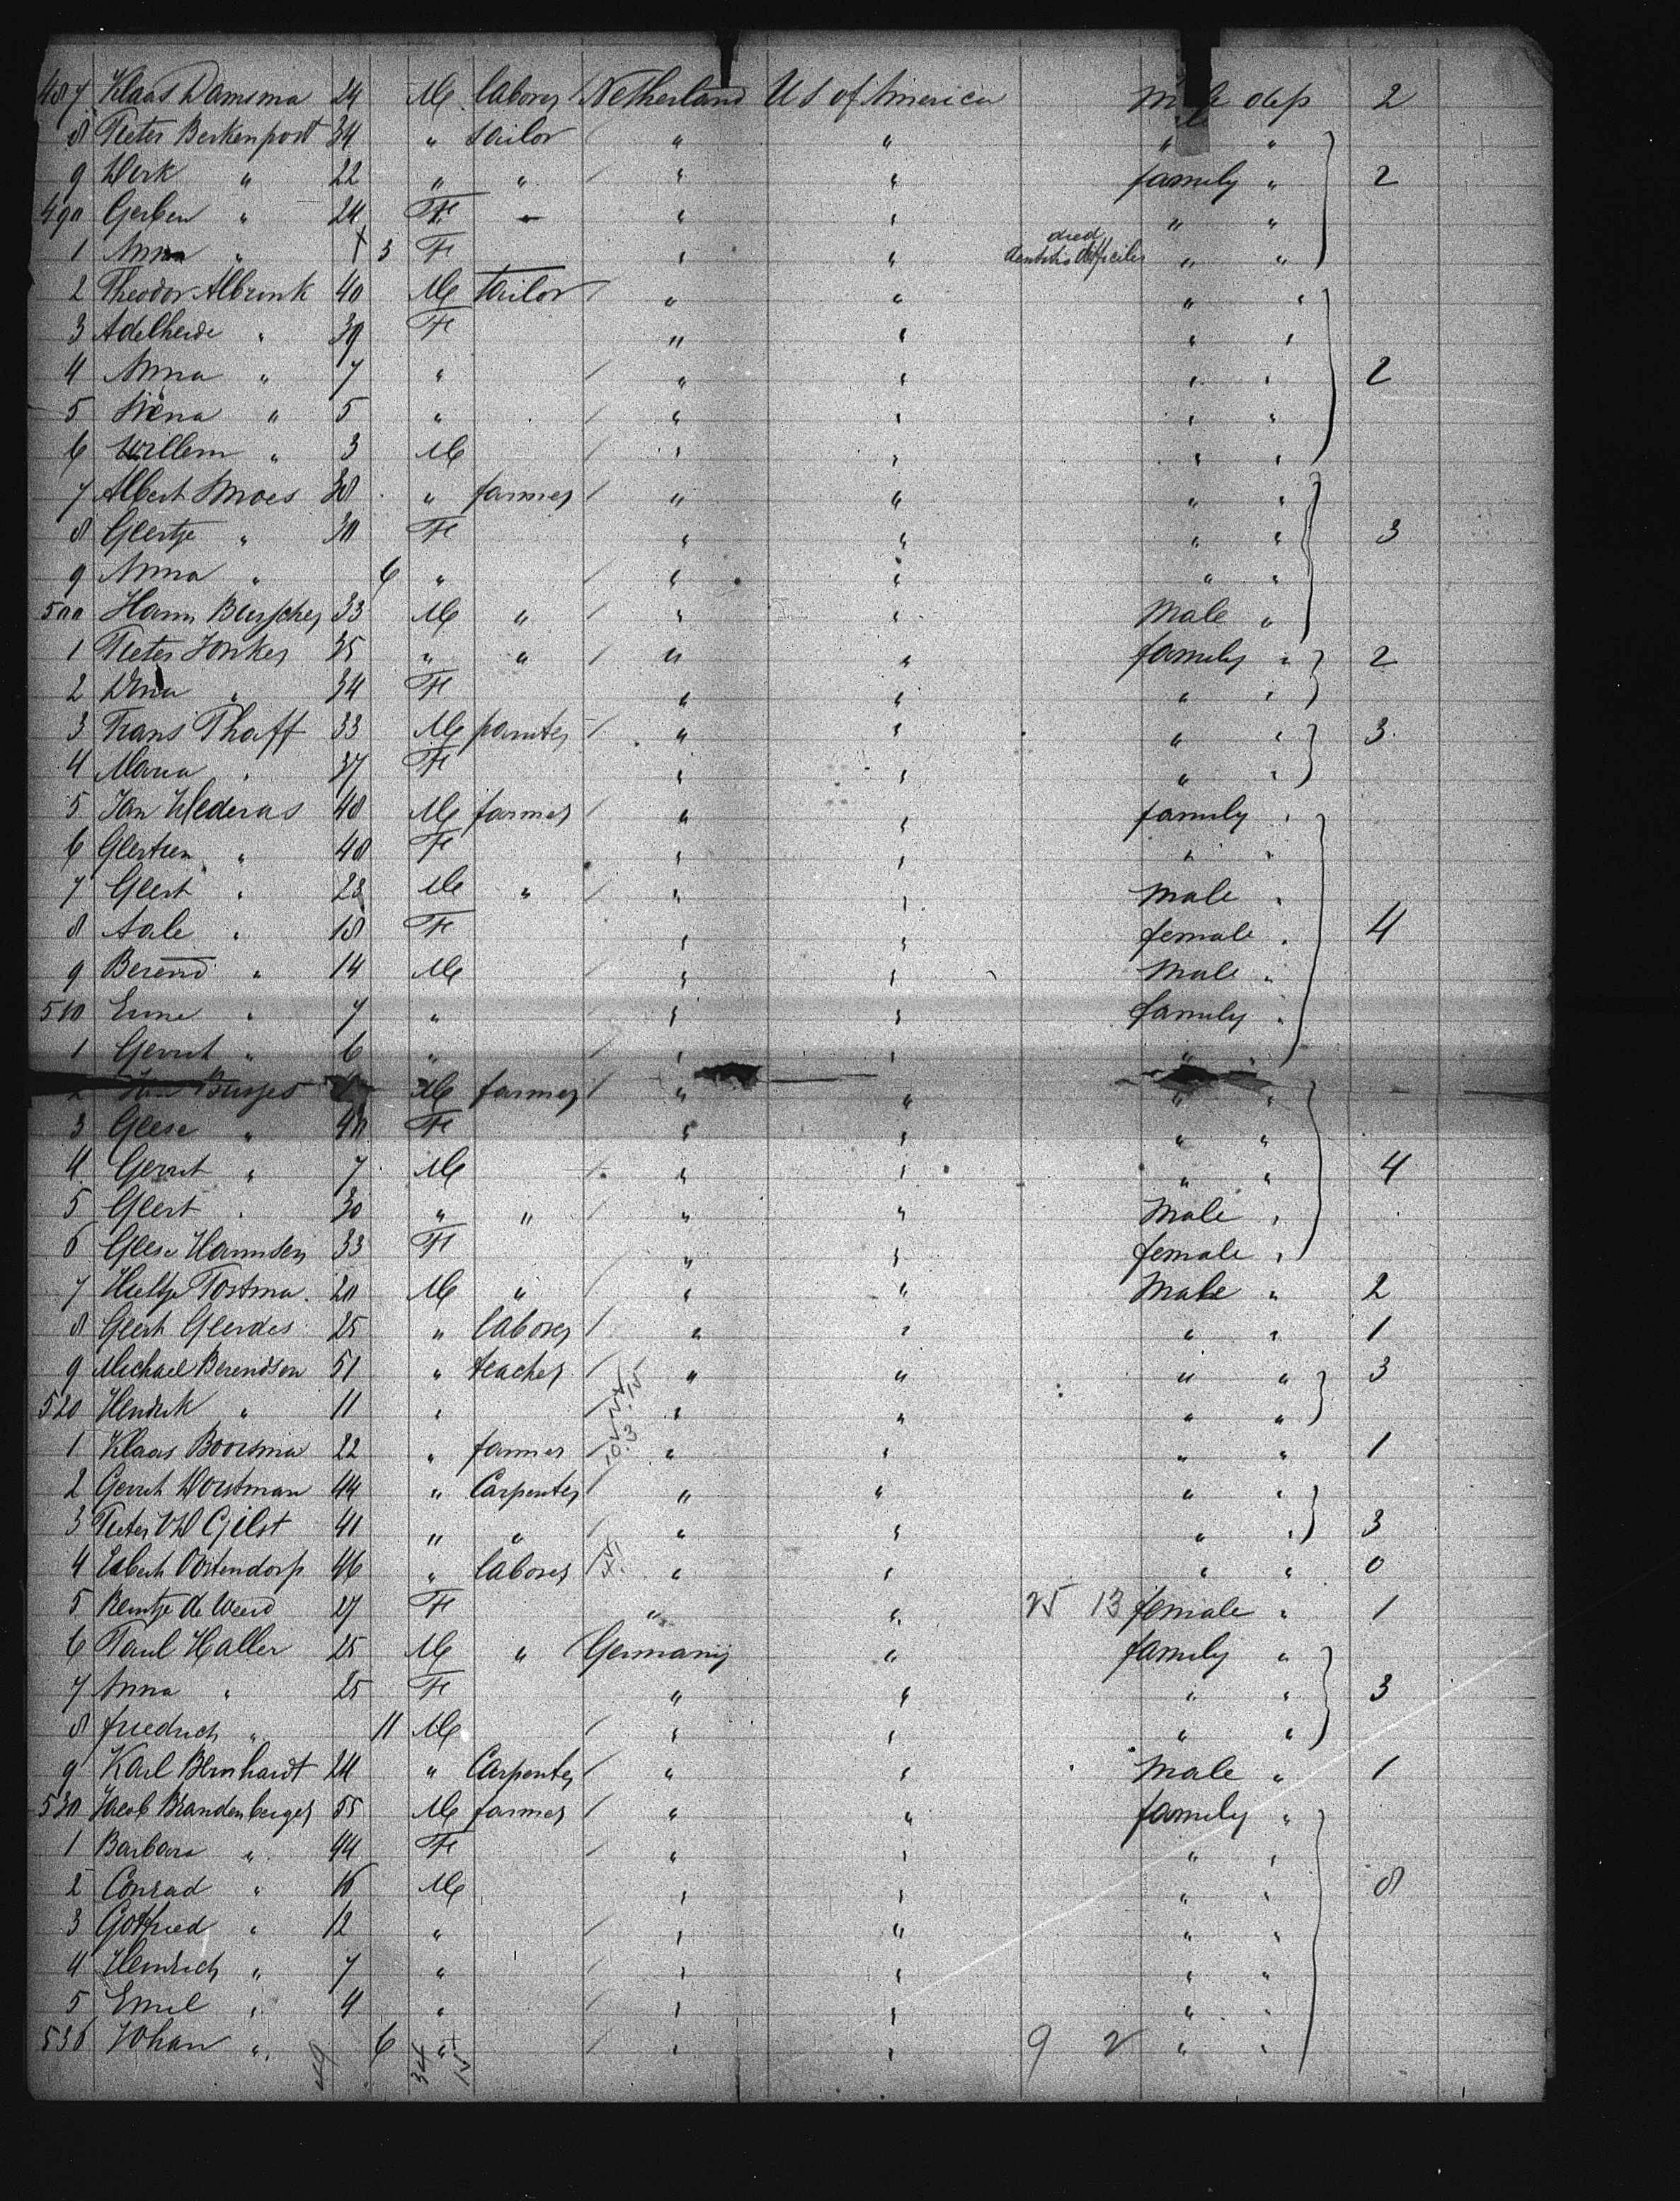 487 Klaas Damsma 24 M laborer Netherland US of America Male dep 2
8 Pieter Berkenpost 34 " tailor " " " "
9 Derk " 22 " " " " family " 2
490 Gerben " 24 F " " " " "
1 Anna " 3 F " " died dentitio difficilis " "
2 Theodor Albrink 40 M tailor " " " "
3 Adelheide " 39 F " " " "
4 Anna " 7 " " " " " 2
5 " 5 " " " " "
6 Willem " 3 M " " " "
7 Albert Smoes 38 " farmer " " " "
8 Geertje " 30 F " " " " 3
9 Anna " 6 " " " " "
500 Harm Buischer 33 M " " " Male "
1 Pieter Jonker 35 " " " " family " 2
2 Dina " 34 F " " " "
3 Frans Thaff 33 M painter " " " " 3
4 Maria " 37 F " " " "
5 Jan 48 M farmer " " family "
6 Geertien " 48 F " " " "
7 Geert " 23 M " " " Male "
8 Aale " 18 F " " female " 4
9 Berend " 14 M " " Male "
510 " 7 " " " family "
1 Gerrit " 6 " " " " "
2 M farmer " " " "
3 Geese " 40 F " " " "
4 Gerrit " 7 M " " " " 4
5 Geert " 30 " " " " Male "
6 Geese Harmsen 33 F " " female "
7 Tostma 20 M " " " Male " 2
8 Geert Geerdes 25 " laborer " " " " 1
9 Michael Berendsen 51 " teacher " " " " 3
520 Hendrik " 11 " " " " "
1 Klaas Boorsma 22 " farmer " " " " 1
2 Gerrit Worstman 44 " Carpenter " " " "
3 Pieter VD Gilst 41 " " " " " " 3
4 Egbert Oostendorp 46 " laborer " " " " 0
5 Rentje de Weerd 27 F " " 25 13 female " 1
6 Paul Haller 25 M " Germany " family "
7 Anna " 25 F " " " " 3
8 friedrich " 11 M " " " "
9 Karl Bernhardt 24 " Carpenter " " Male " 1
530 Jacob Brandenberger 55 M farmer " " family "
1 Barbara " 44 F " " " "
2 Conrad " 16 M " " " " 8
3 Gotfried " 12 " " " " "
4 Heinrich " 7 " " " " "
5 Emil " 4 " " " " "
536 Johan " 6 " " " 9 2 " "